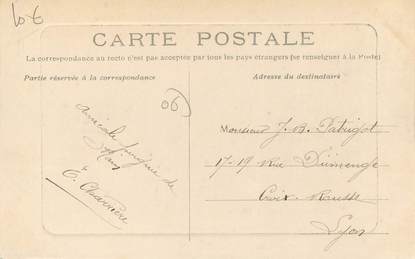 10 €
CARTE POSTALE
La correspondance au recto n'est pas acceptée par tous les pays étrangers (se renseigner à la Poste)
Partie réservée à la correspondance
Adresse du destinataire
06
amicale poignée de
main
E. Charrière
Monsieur J. B. Patrigot
17-19 Rue Dumenge
Croix Rousse
Lyon